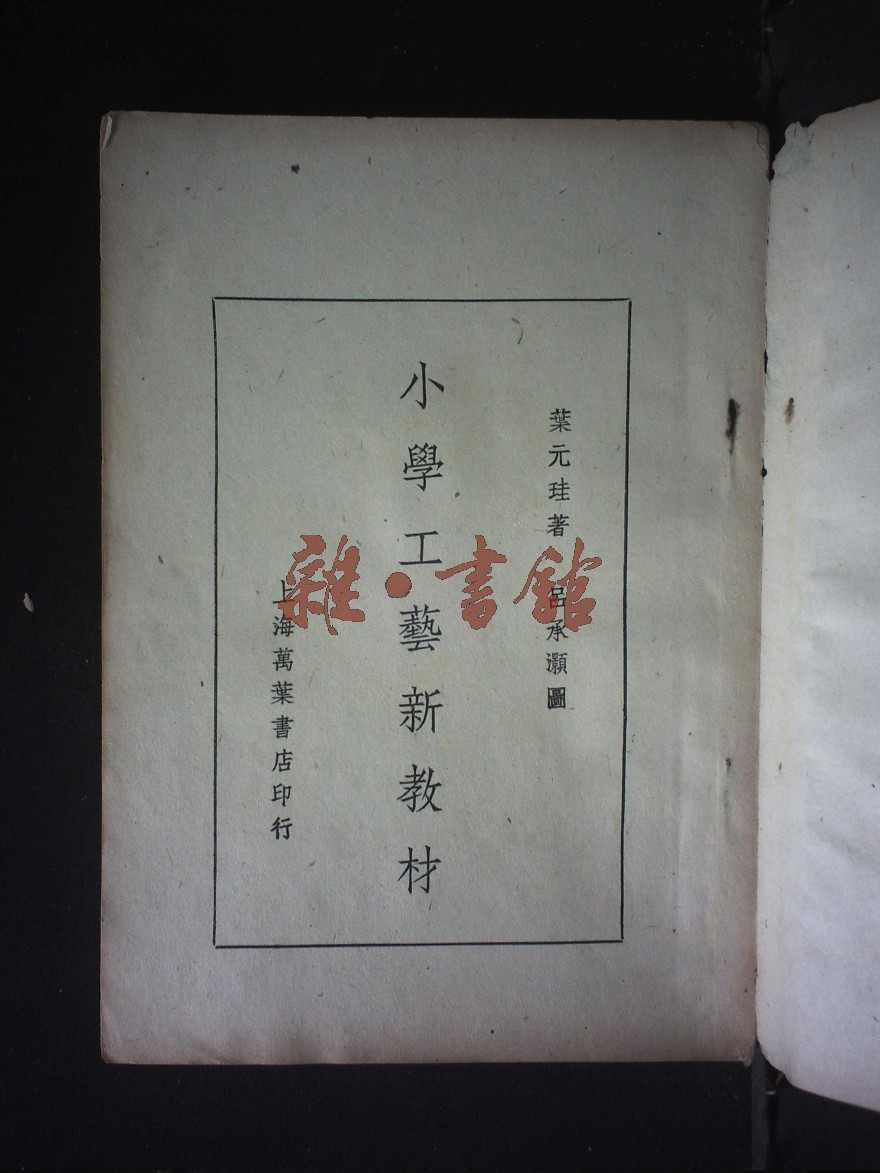 葉元珪著　呂承灝圖
小學工藝新教材
上海萬葉書店印行
雜·書館